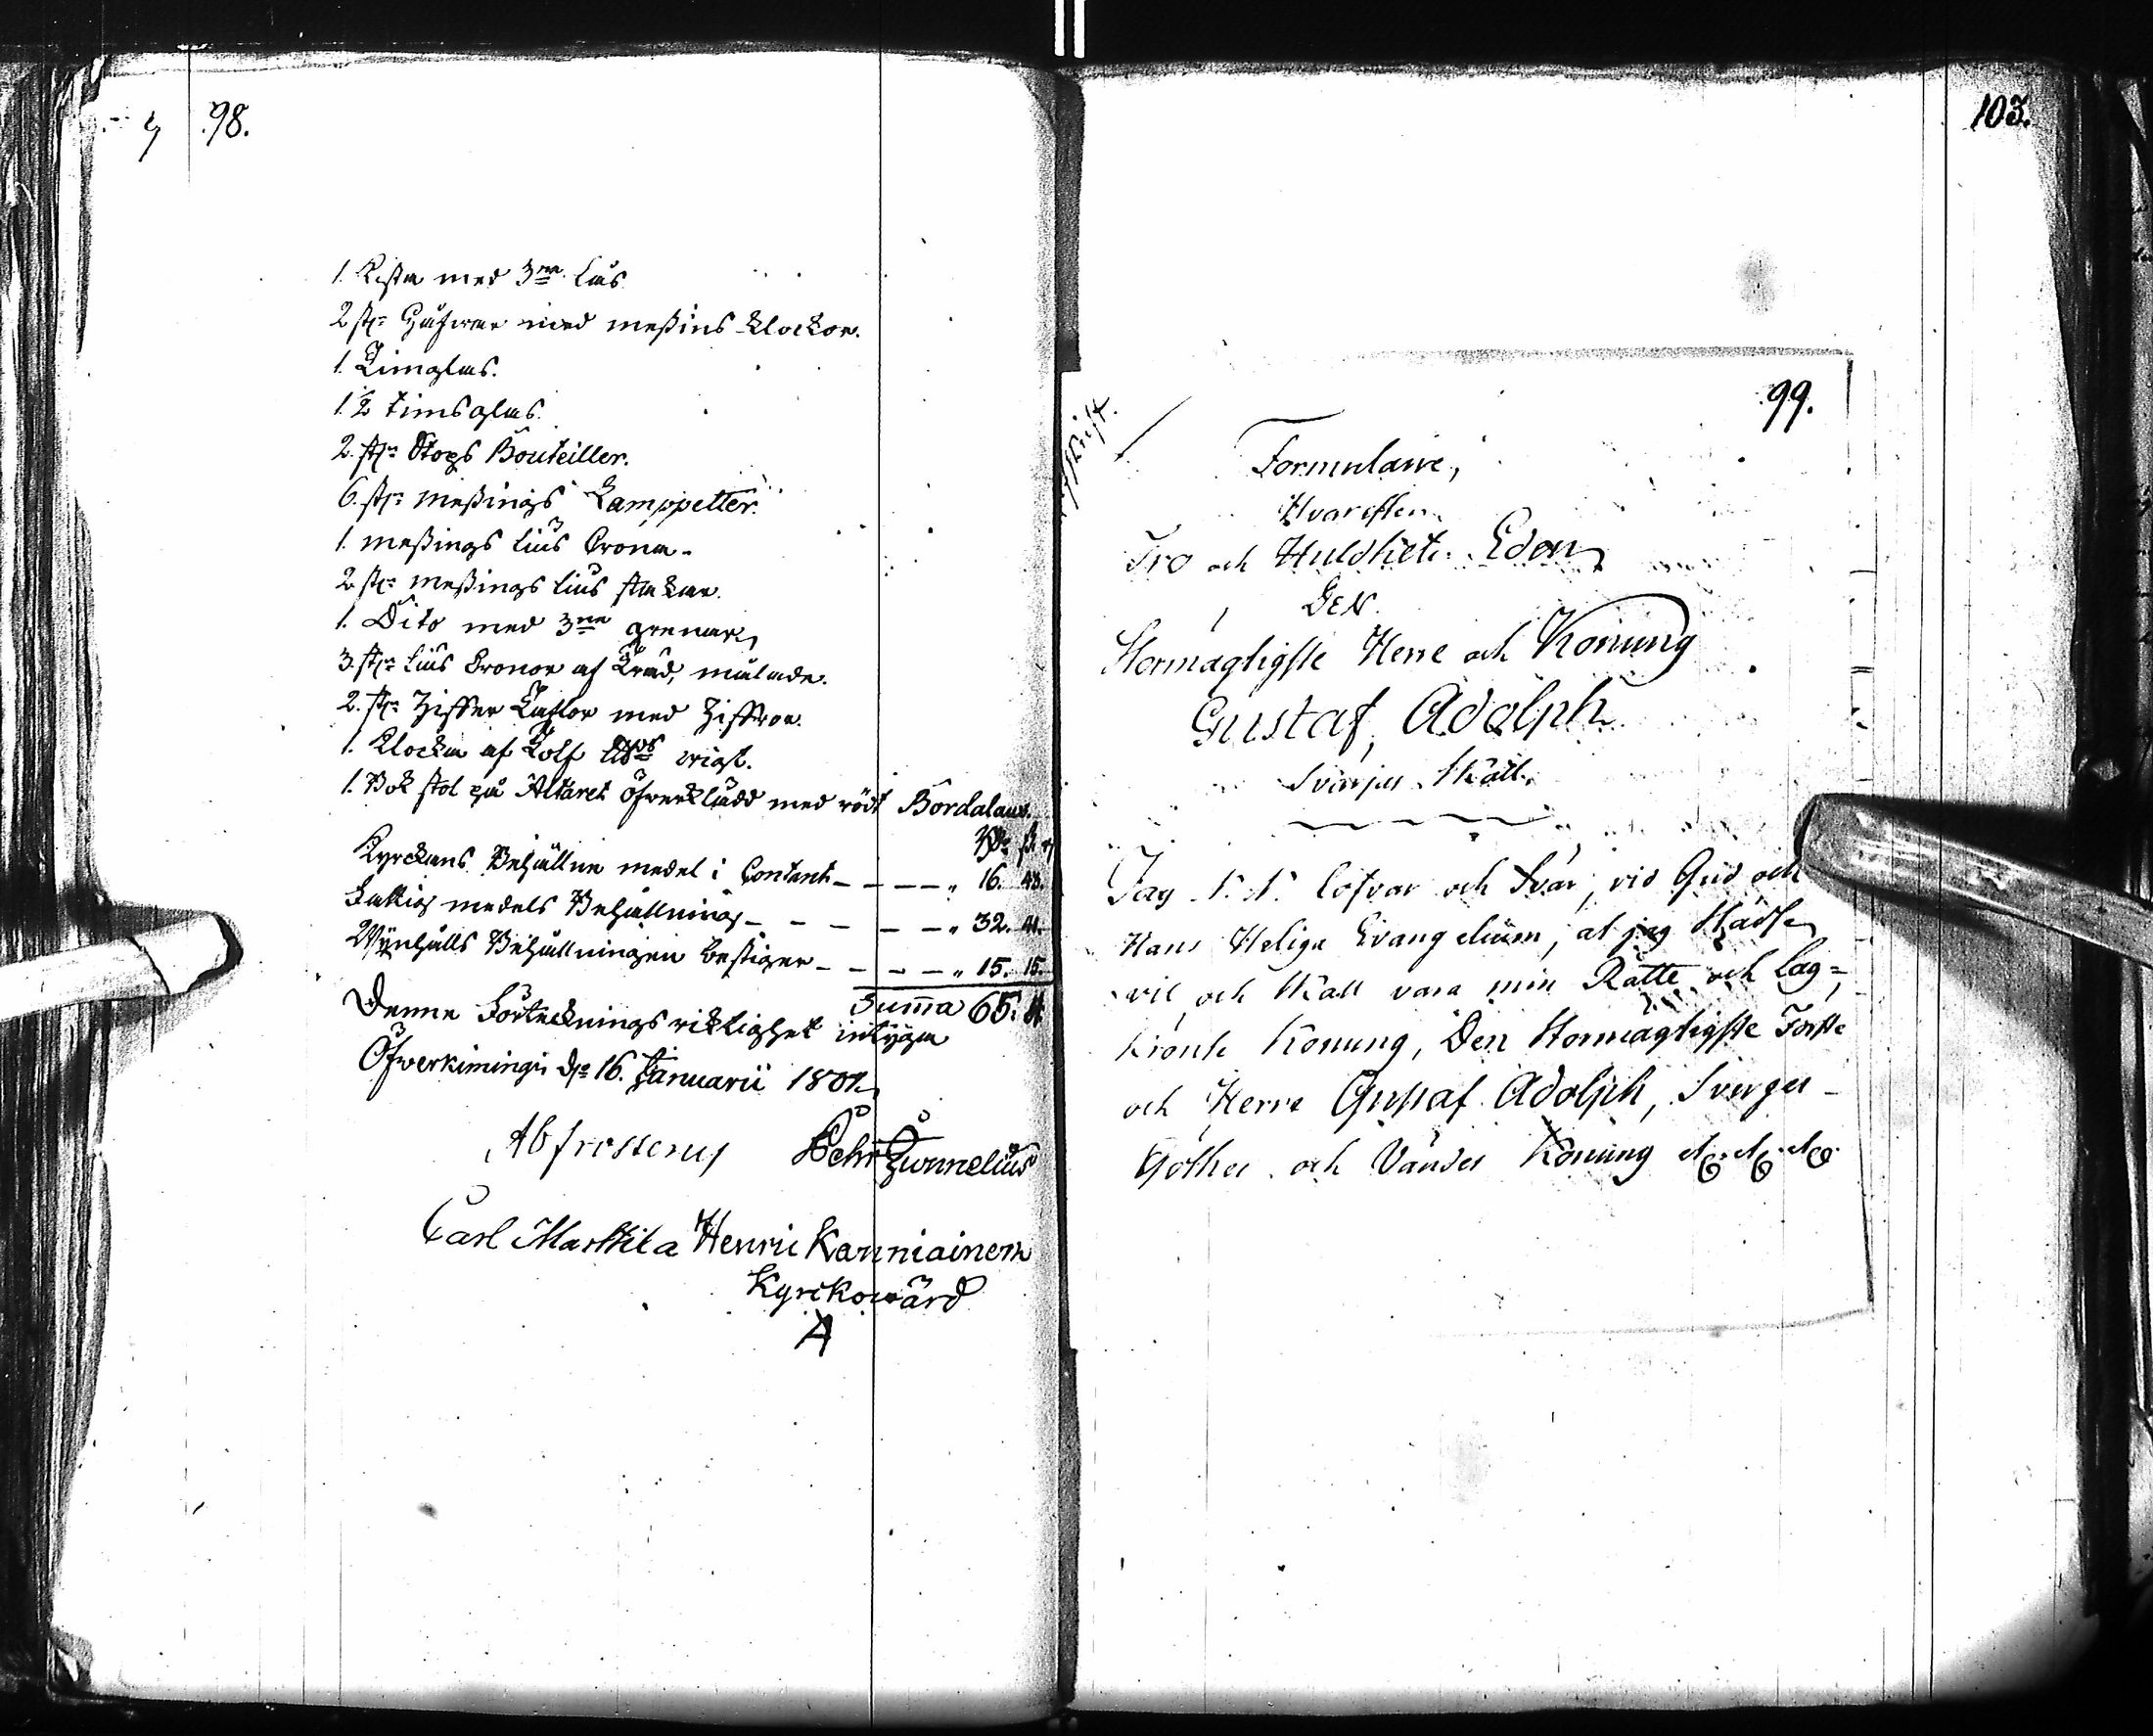 98.
1. Kista med 3ne Lås
2 st: Håfwar med meßins klockor.
1. Timglas.
1 1/2 timsglas.
2. st: Stops Bouteiller.
6. st: meßings Lamppetter.
1. meßings lius Crona
2 st: meßings lius stakar.
1. Dito med 3ne grenar,
3. st: lius Cronor af Träd, målade.
2. st: Ziffer Taflor med Ziffror.
1. Klocka af Tolf vigt.
1. Bok stol på Altaret öfwerklädd med rödt Bordalan
Kyrckans Behållne medel i Contant - - - - " 16. 43.
Fattig medels Behållning - - - - - " 32. 41.
Wynhålls Behållningen bestiger - - - - " 15. 15.
Summa 65.
Denne Förtecknings riktighet intyga
Öfwerkimingi d: 16. Januarii 1801
Ab frosserus Pehr Zunnelius
Carl Markkila Henric Kanniainen
Kyrckowärd
103.
99.
Formulaire,
Hvarefter
Tro och Huldhets Eden
Den
Stormägtigste Herre och Konung
Gustaf Adolph
Sveriges Skall
Jag N. N. lofvar och Svär, vid Gud och
Hans Heliga Evangelium, at jag Städse
vil och skall vara min Rätte och Lag=
krönte Konung, Den Stormägtigste Förste
och Herre Gustaf Adolph, Sverges
Göthes och Vändes Konung etc. etc. etc.